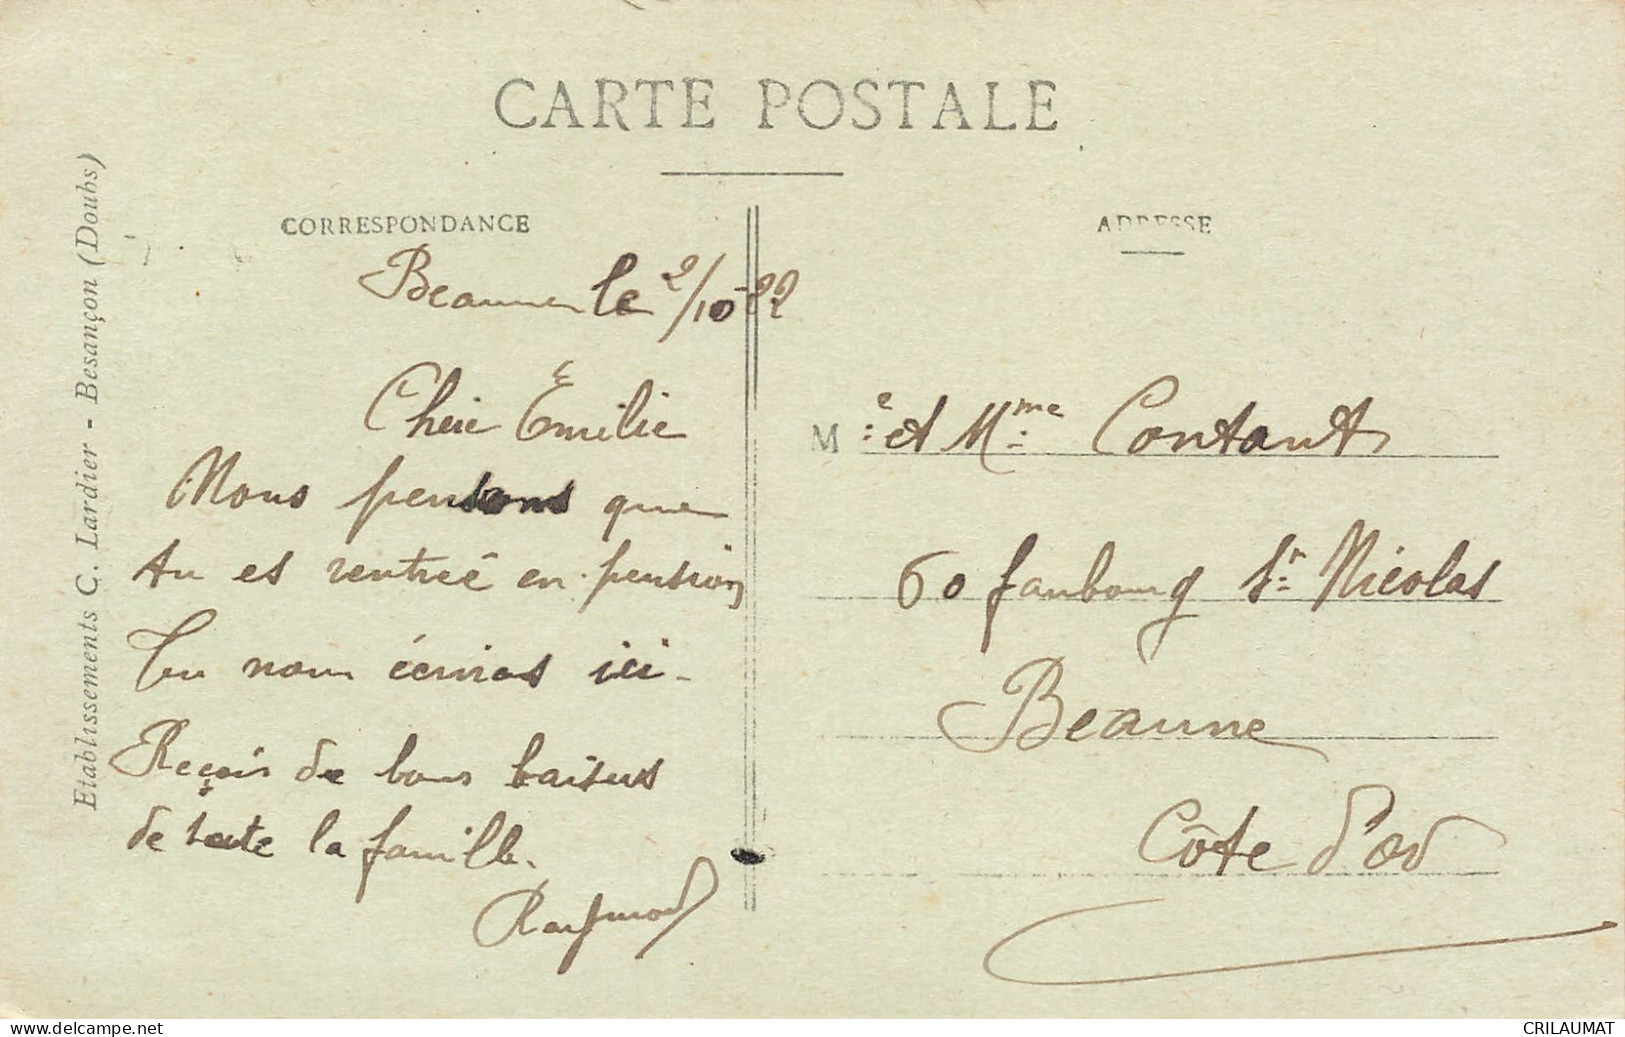 CARTE POSTALE
CORRESPONDANCE
Beaune le 2/10-22
Chère Emilie
Nous pensons que
tu es rentreé en pension
Tu nous écriras ici.
Reçois de bons baisers
de toute la famille.
Raymond
ADRESSE
M e et Mme Contant
60 faubourg St Nicolas
Beaune
Côte d'or
Etablissements C. Lardier - Besançon (Doubs)
www.delcampe.net
CRILAUMAT